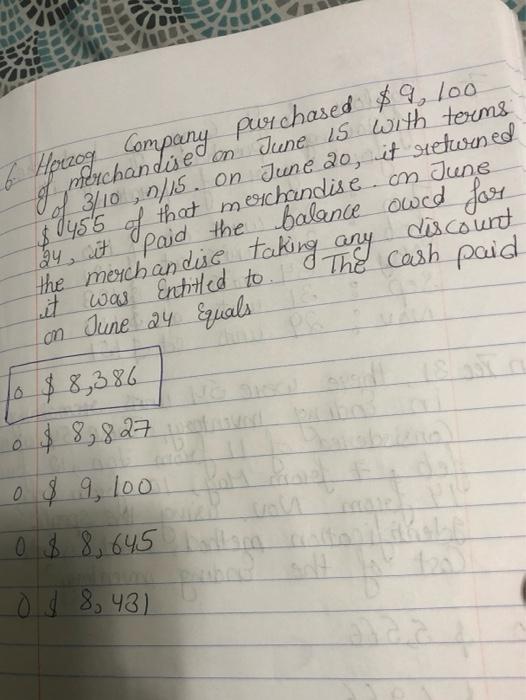 6. Herzog Company purchased $9,100
of merchandise on June 15 with terms
of 3/10, n/15. on June 20, it returned
$455 of that merchandise. on June
24, it paid the balance owed for
the merchandise taking any discount
it was Entitled to. The cash paid
on June 24 Equals
o $ 8,386
o $ 8,827
o $ 9,100
o $ 8,645
o $ 8,431